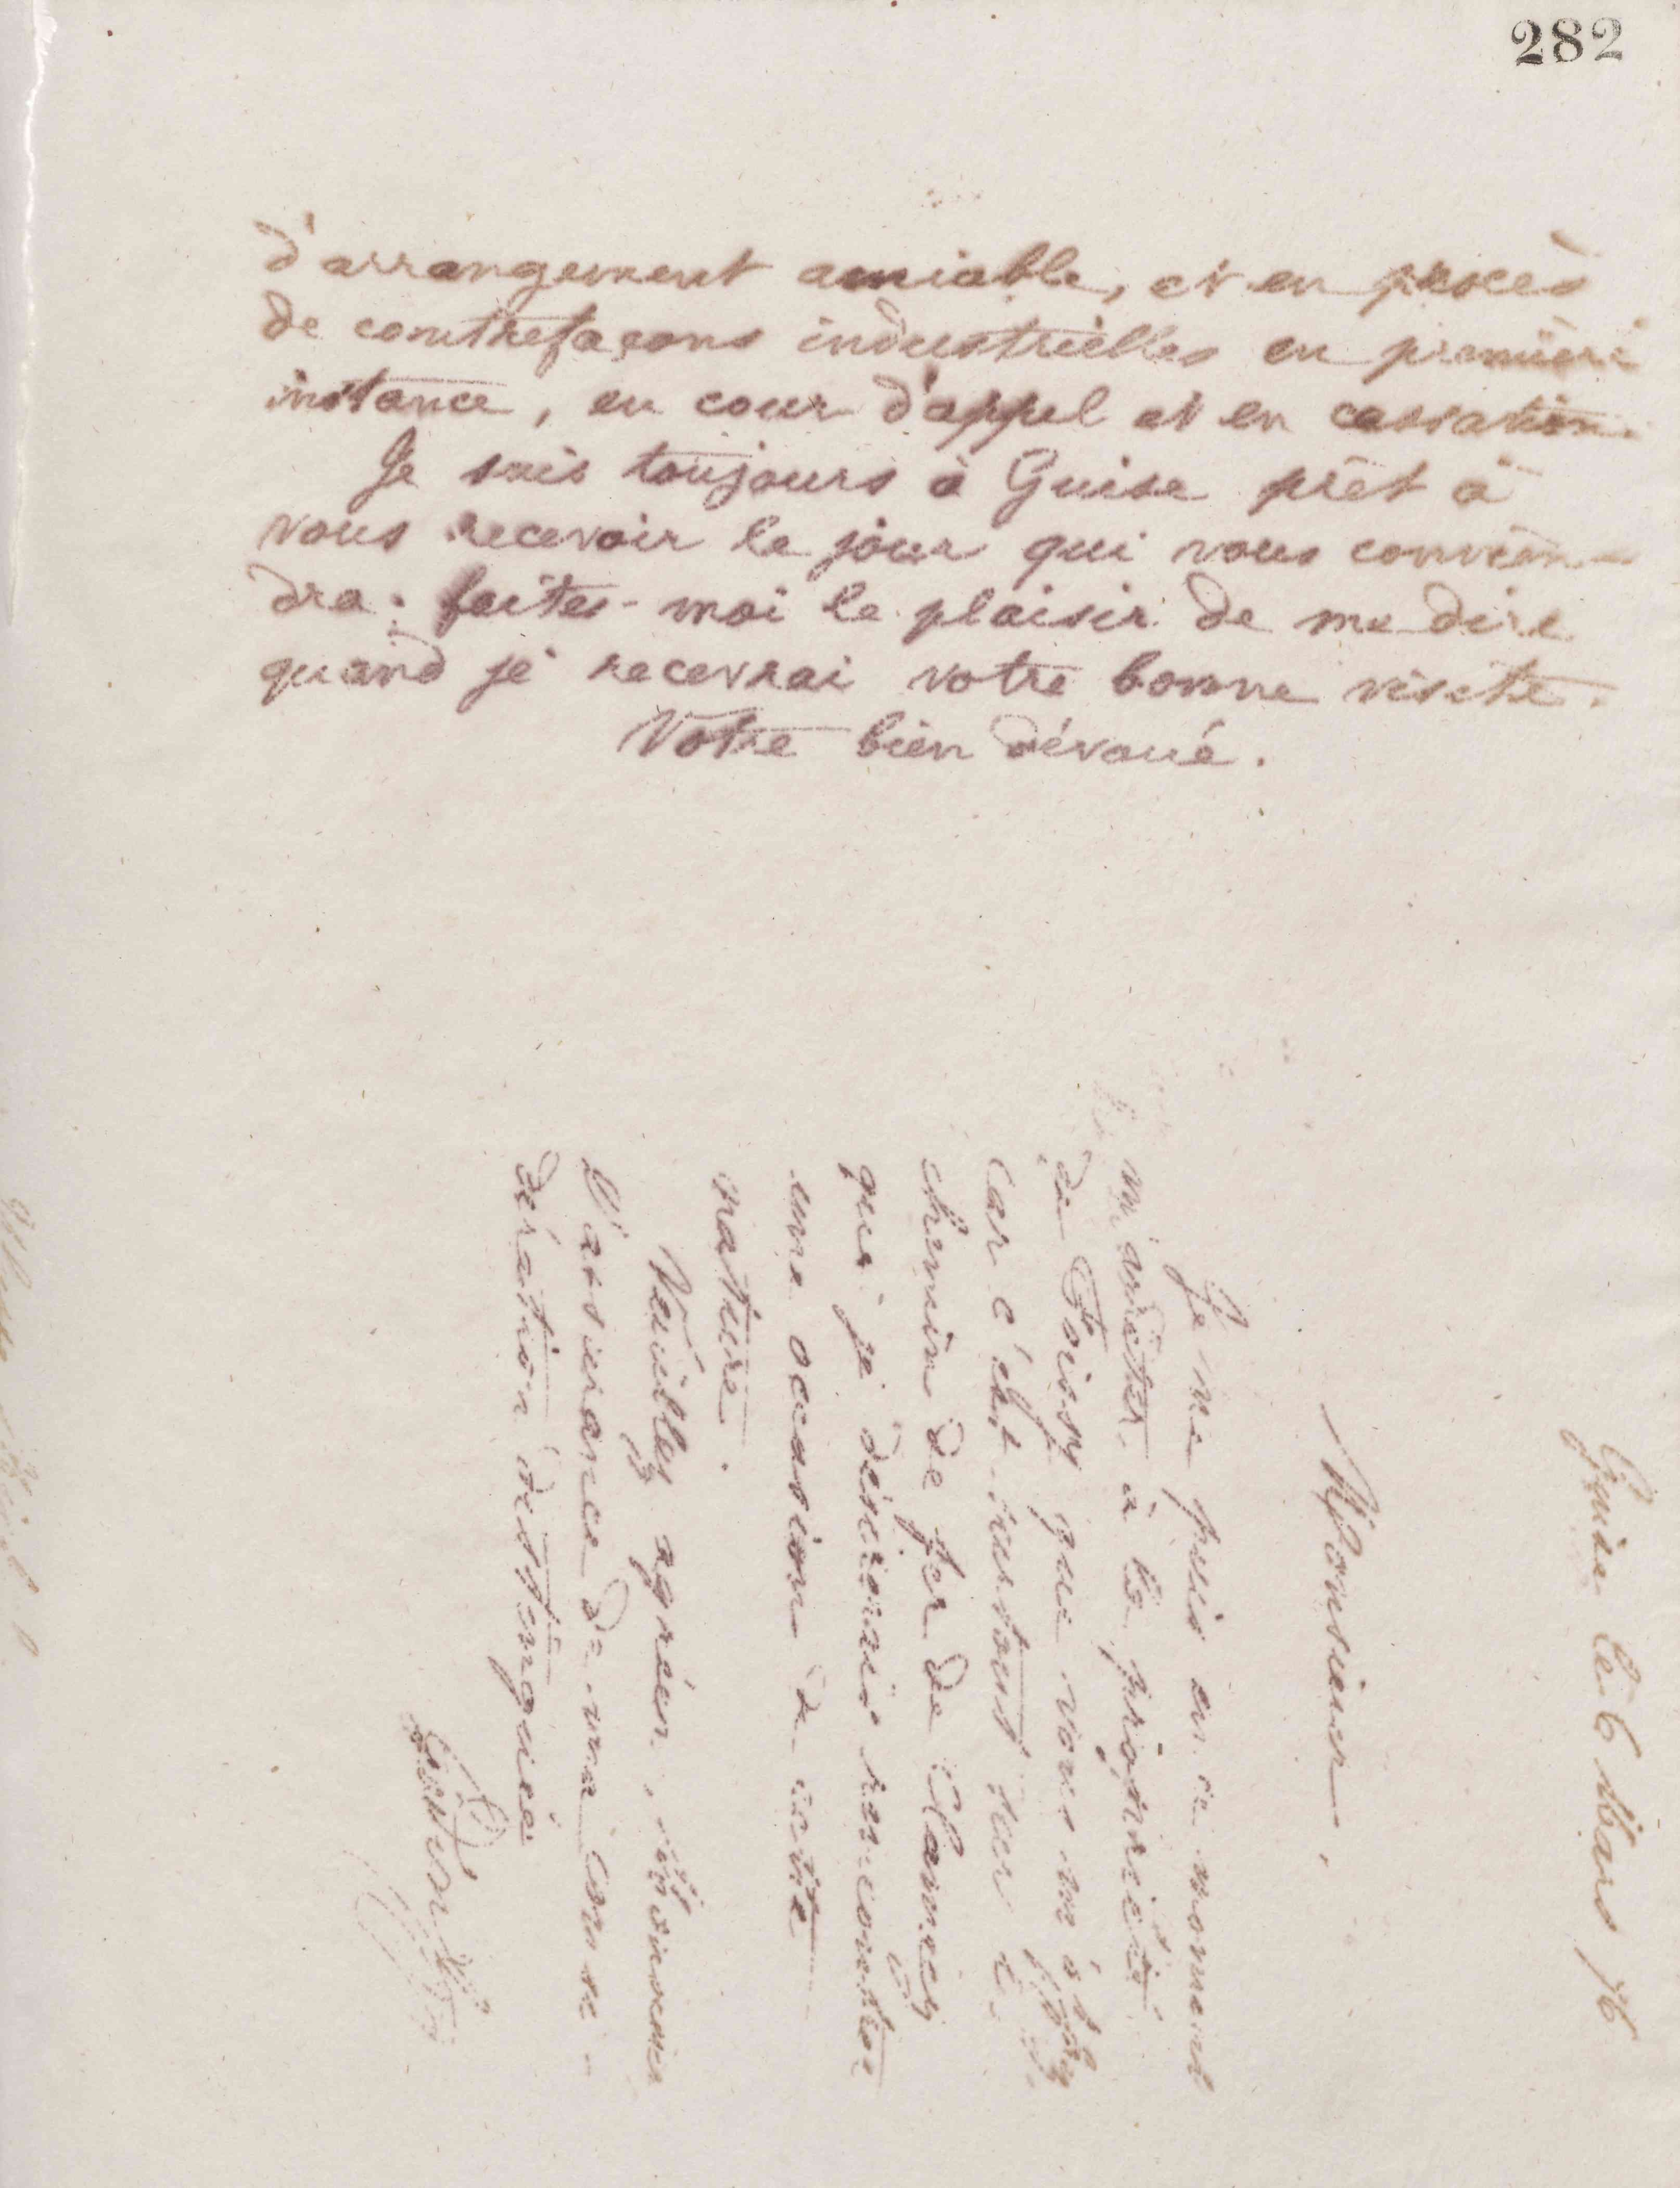 282
d'arrangement amiable, et en procès
de contrefaçons industrielles en première
instance, en cour d'appel et en cassation.
Je suis toujours à Guise prêt à
vous recevoir le jour qui vous convien-
dra. faites-moi le plaisir de me dire
quand je recevrai votre bonne visite.
Votre bien dévoué.
Guise le 6 Mars 76
Monsieur,
Je ne puis en ce moment
m'arrêter à la propriété
de Foissy que vous m'offrez
car c'est surtout sur le
chemin de fer de Clamecy
que je désirerais rencontrer
une occasion de cette
nature.
Veuillez agréer, Monsieur
l'assurance de ma consi-
dération distinguée
Godin